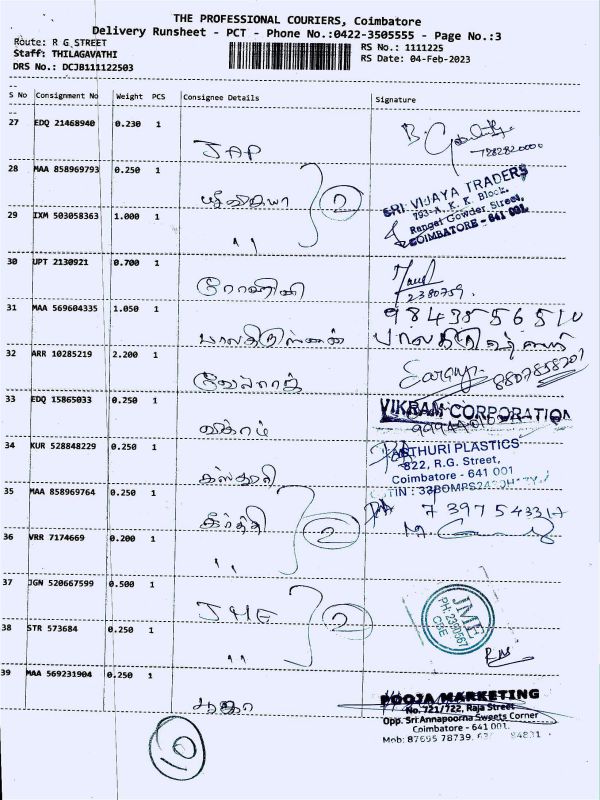 THE PROFESSIONAL COURIERS, Coimbatore
Delivery Runsheet - PCT - Phone No.:0422-3505555 - Page No.:3
Route: R G STREET
RS No.: 1111225
Staff: THILAGAVATHI
RS Date: 04-Feb-2023
DRS No.: DCJB111122503
S No Consignment No Weight PCS Consignee Details Signature
27 EDQ 21468940 0.230 1 JAP
28 MAA 858969793 0.250 1 2
SRI VIJAYA TRADERS
793-A, K. K. Block,
Rangai Gowder Street,
COIMBATORE - 641 001.
29 IXM 503058363 1.000 1 "
30 UPT 2130921 0.700 1 ரோஹிணி
2380759
31 MAA 569604335 1.050 1 பாலகிருஷ்ணன்
9843856510
32 ARR 10285219 2.200 1
8807858207
33 EDQ 15865033 0.250 1 விக்ரம்
VIKRAM CORPORATION
34 KUR 528848229 0.250 1 கஸ்தூரி
KASTHURI PLASTICS
822, R.G. Street,
Coimbatore - 641 001
35 MAA 858969764 0.250 1 கீர்த்தி 2
36 VRR 7174669 0.200 1 "
37 JGN 520667599 0.500 1 JME 2
JME
PH: 2390567
CBE
38 STR 573684 0.250 1 "
39 MAA 569231904 0.250 1 பூஜா
POOJA MARKETING
No. 721/722, Raja Street
Opp. Sri Annapoorna Sweets Corner
Coimbatore - 641 001.
Mob: 87695 78739,
10